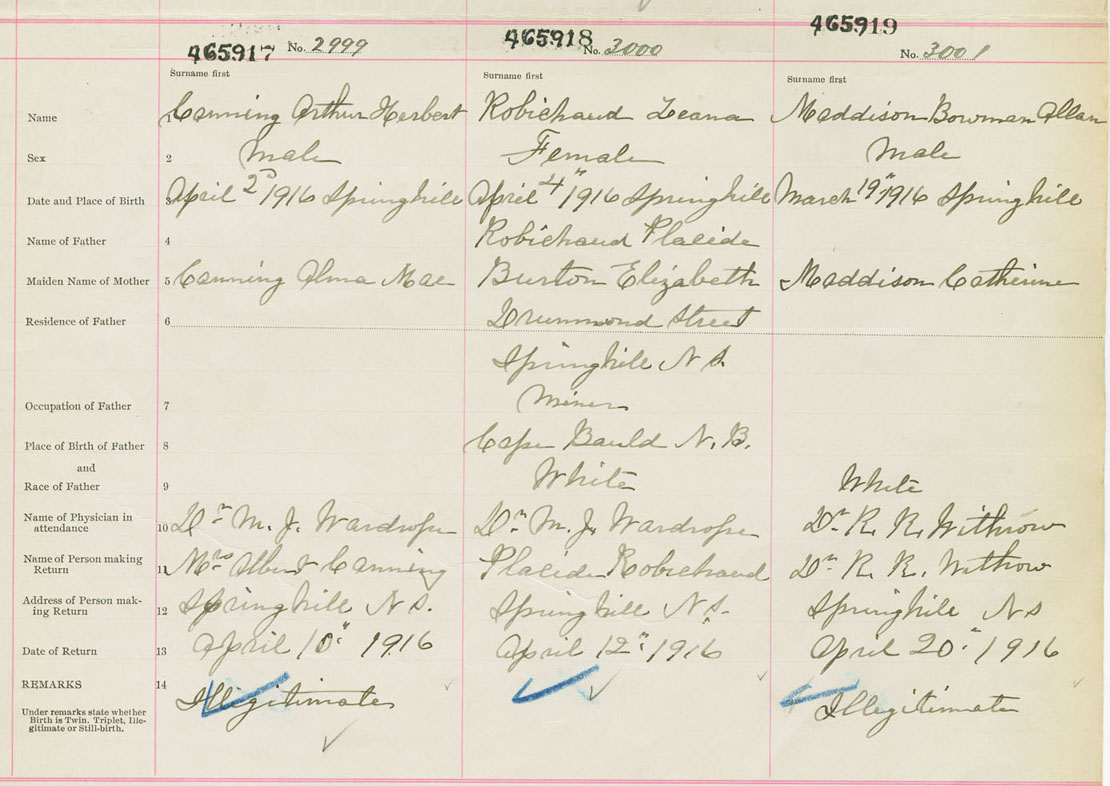 465917 No. 2999 465918 No. 3000 465919 No. 3001
Surname first Surname first Surname first
Name 1 Canning Arthur Herbert Robichaud Leana Maddison Bowman Allan
Sex 2 Male Female Male
Date and Place of Birth 3 April 2" 1916 Springhill April 4" 1916 Springhill March 19" 1916 Springhill
Name of Father 4 Robichaud Placide
Maiden Name of Mother 5 Canning Alma Mae Burton Elizabeth Maddison Catherine
Residence of Father 6 Drummond Street
Springhill N S.
Occupation of Father 7 Miner
Place of Birth of Father 8 Cape Bauld N. B.
and
Race of Father 9 White White
Name of Physician in
attendance 10 Dr M. J. Wardrope Dr M. J. Wardrope Dr R. R. Withrow
Name of Person making
Return 11 Mrs Albert Canning Placide Robichaud Dr R. R. Withrow
Address of Person mak-
ing Return 12 Springhill N S. Springhill N S. Springhill N S
Date of Return 13 April 10" 1916 April 12" 1916 April 20" 1916
REMARKS 14 Illegitimate Illegitimate
Under remarks state whether
Birth is Twin. Triplet, Ille-
gitimate or Still-birth.